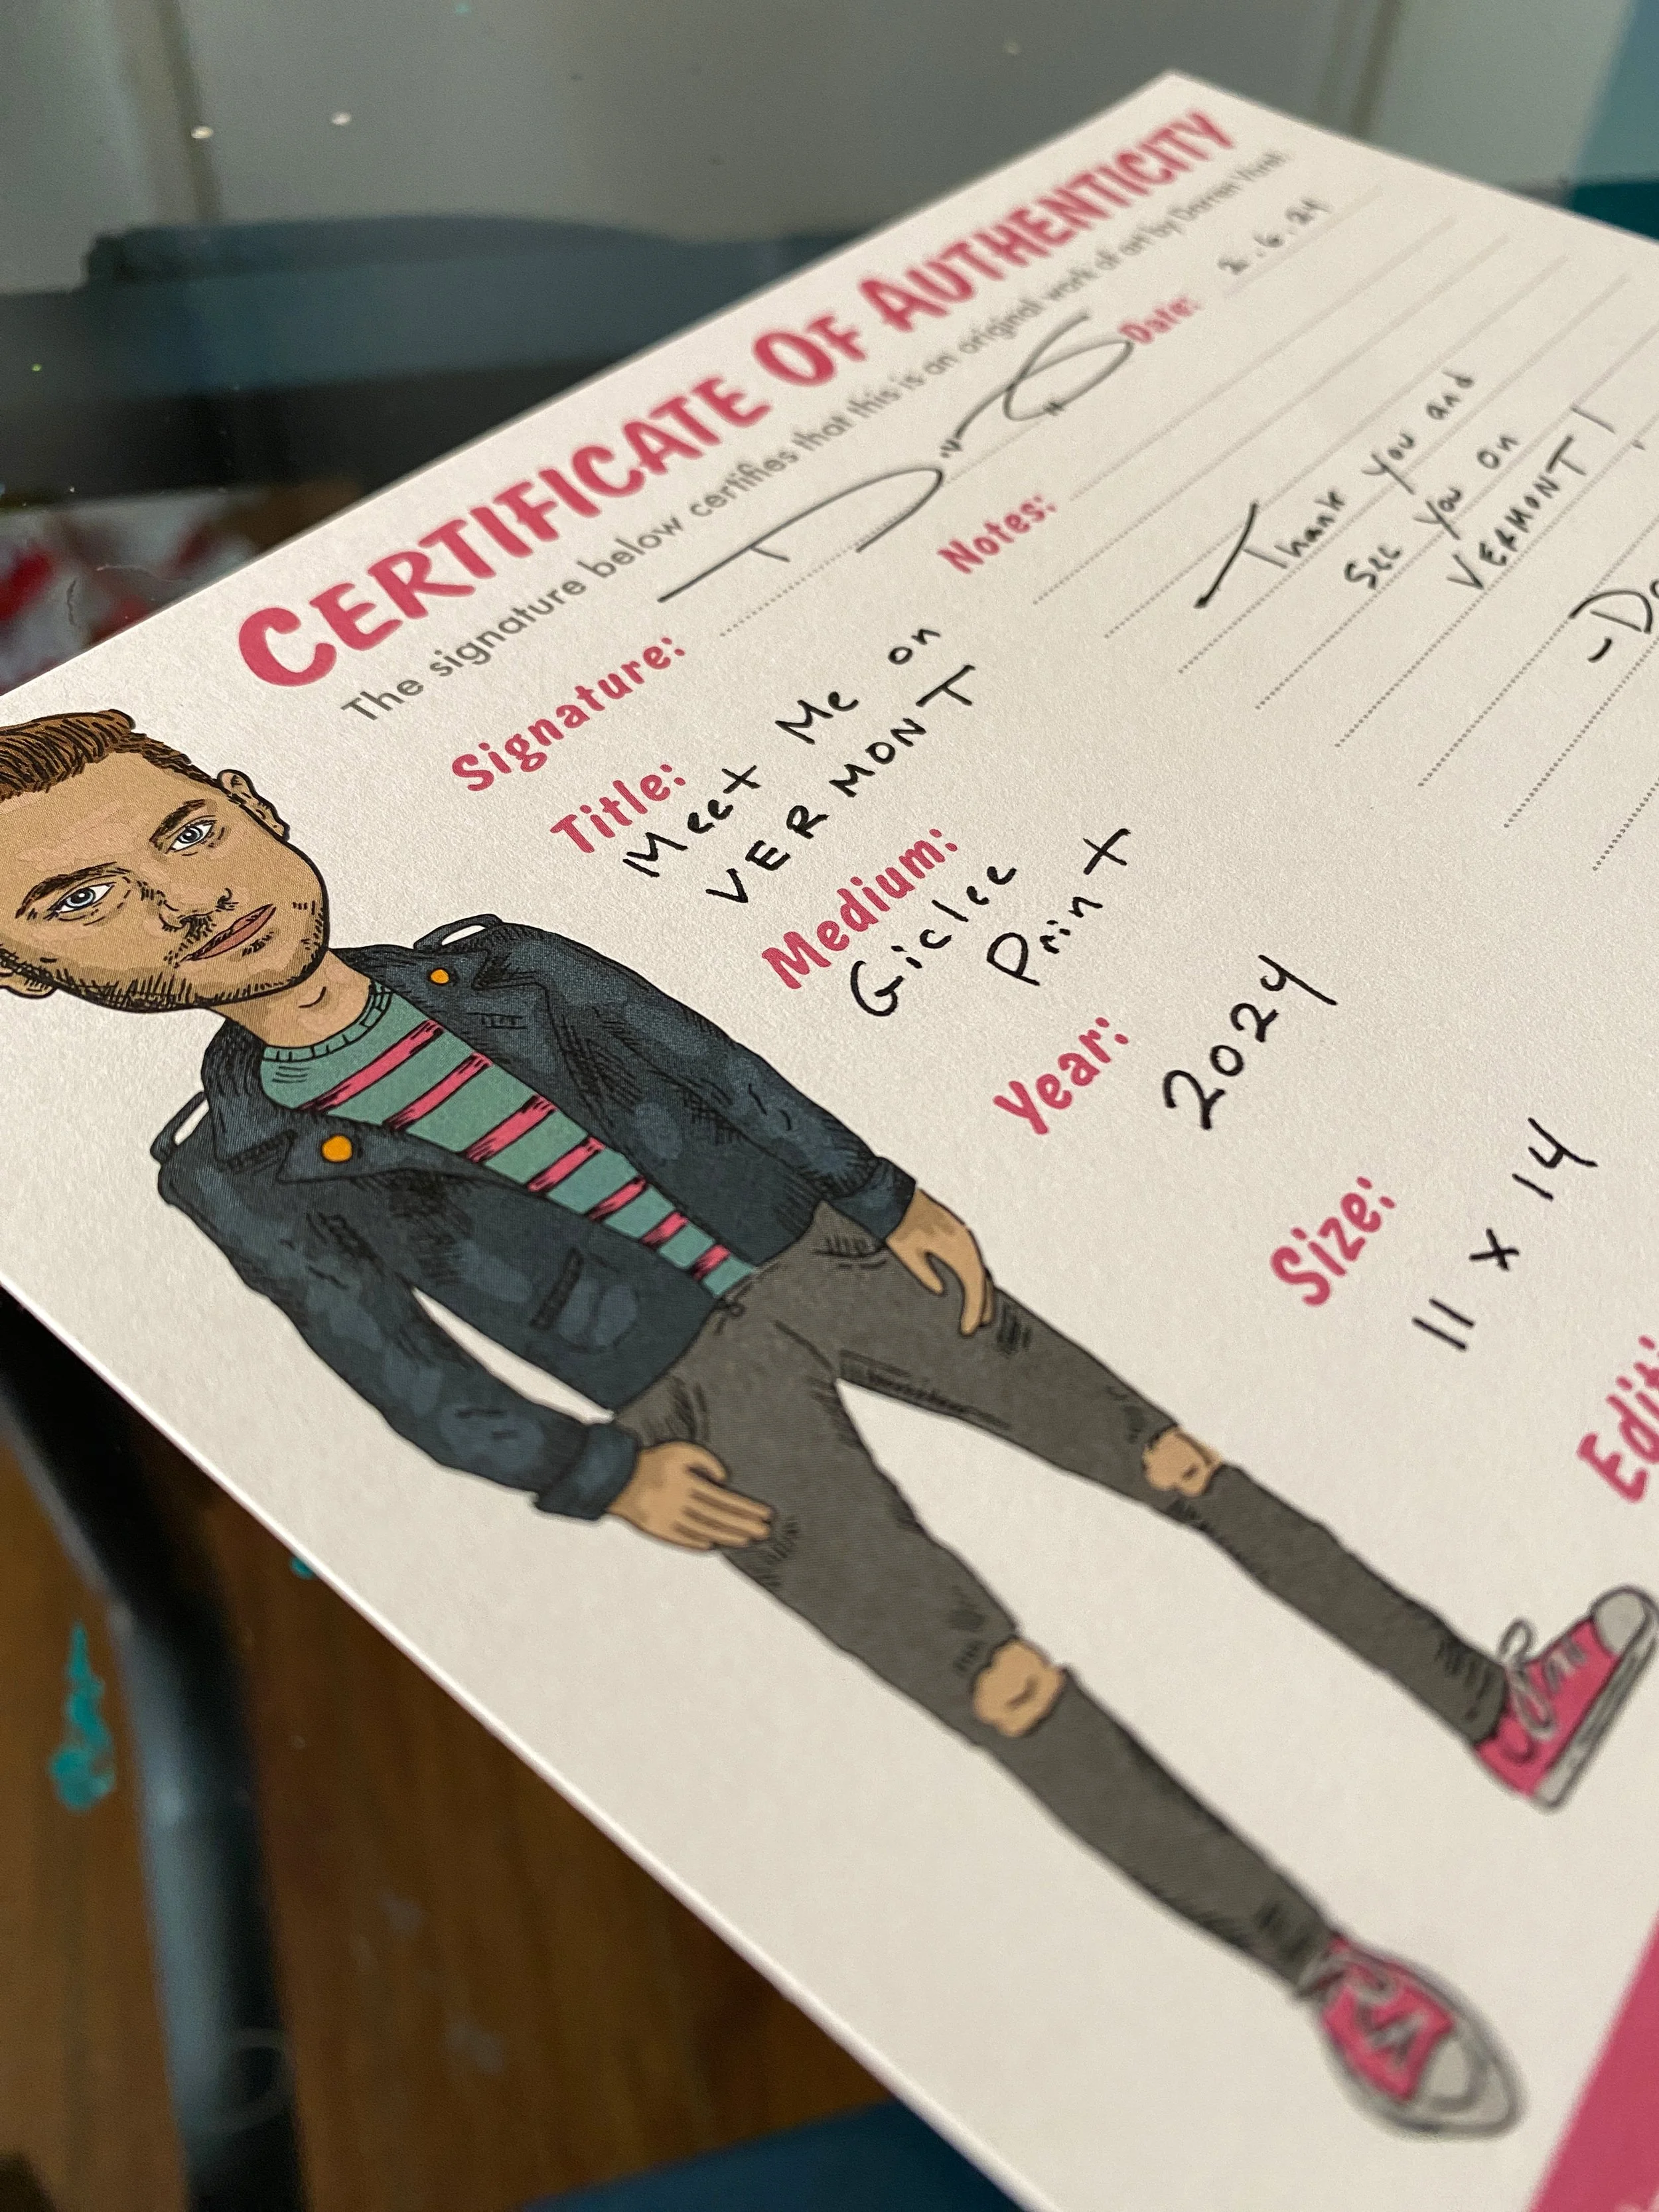 CERTIFICATE OF AUTHENTICITY
The signature below certifies that this is an original work of art by Darren
Signature:
Date: 2.6.24
Title:
Meet Me on
VERMONT
Medium:
Giclee
Print
Year:
2024
Size:
11 x 14
Notes:
Thank you and
see you on
VERMONT!